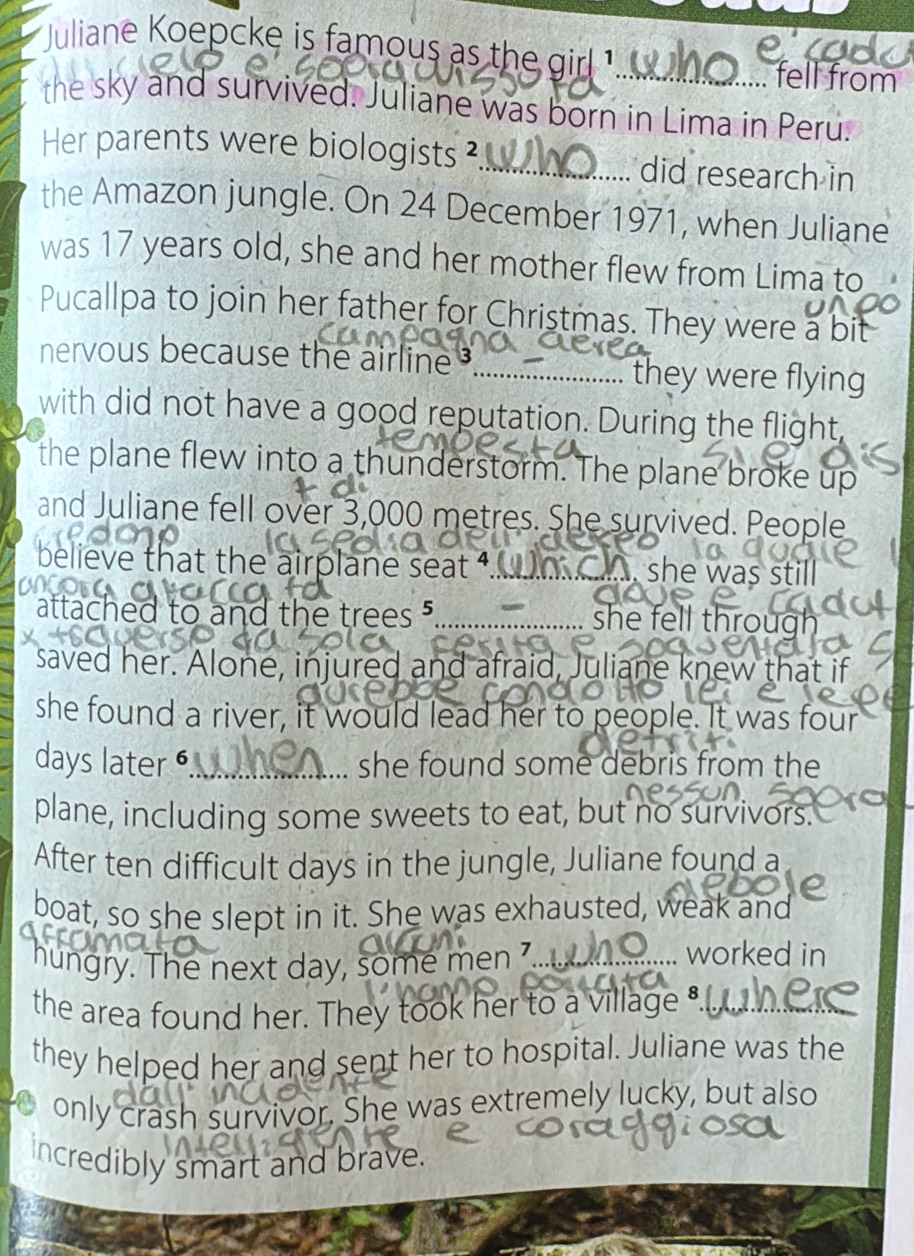 Juliane Koepcke is famous as the girl ¹ who fell from
e' cadu
cielo e' sopravvissuta
the sky and survived. Juliane was born in Lima in Peru.
Her parents were biologists ² who did research in
the Amazon jungle. On 24 December 1971, when Juliane
was 17 years old, she and her mother flew from Lima to
un po
Pucallpa to join her father for Christmas. They were a bit
campagna aerea
nervous because the airline ³ – they were flying
with did not have a good reputation. During the flight,
tempesta si è dis
the plane flew into a thunderstorm. The plane broke up
+ di
and Juliane fell over 3,000 metres. She survived. People
credono la sedia dell' aereo la quale
believe that the airplane seat ⁴ which she was still
ancora attaccata dove e' cadut
attached to and the trees ⁵ – she fell through
x traverso da sola ferita e spaventata
saved her. Alone, injured and afraid, Juliane knew that if
avrebbe condotto lei e le pe
she found a river, it would lead her to people. It was four
detriti
days later ⁶ when she found some debris from the
nessun sopra
plane, including some sweets to eat, but no survivors.
After ten difficult days in the jungle, Juliane found a
debole
boat, so she slept in it. She was exhausted, weak and
affamata alcuni
hungry. The next day, some men ⁷ who worked in
l'hanno portata
the area found her. They took her to a village ⁸ where
they helped her and sent her to hospital. Juliane was the
dall' incidente
only crash survivor. She was extremely lucky, but also
intelligente e coraggiosa
incredibly smart and brave.